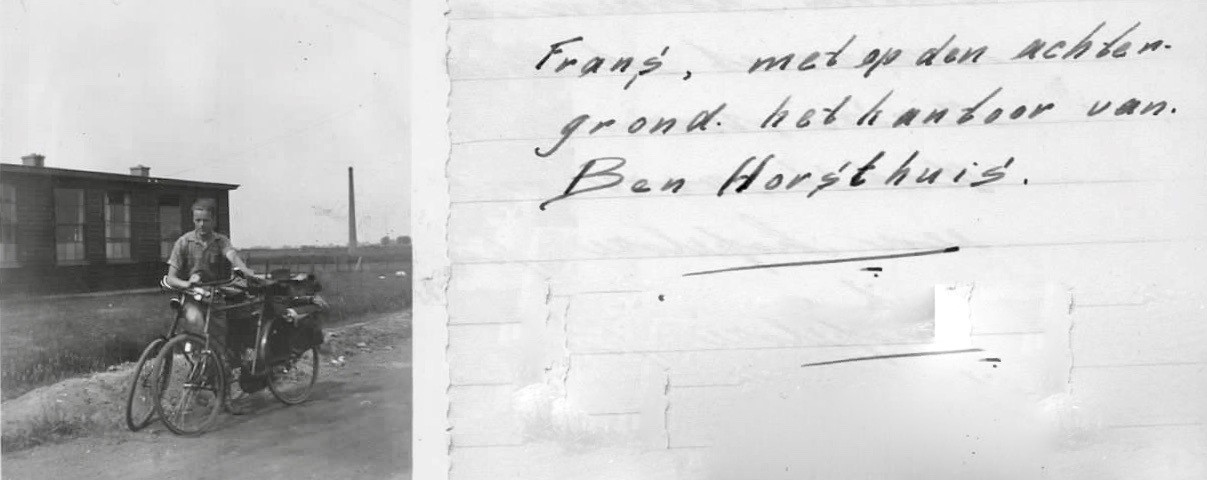 Frans, met op den achter-
grond. het kantoor van.
Ben Horsthuis.